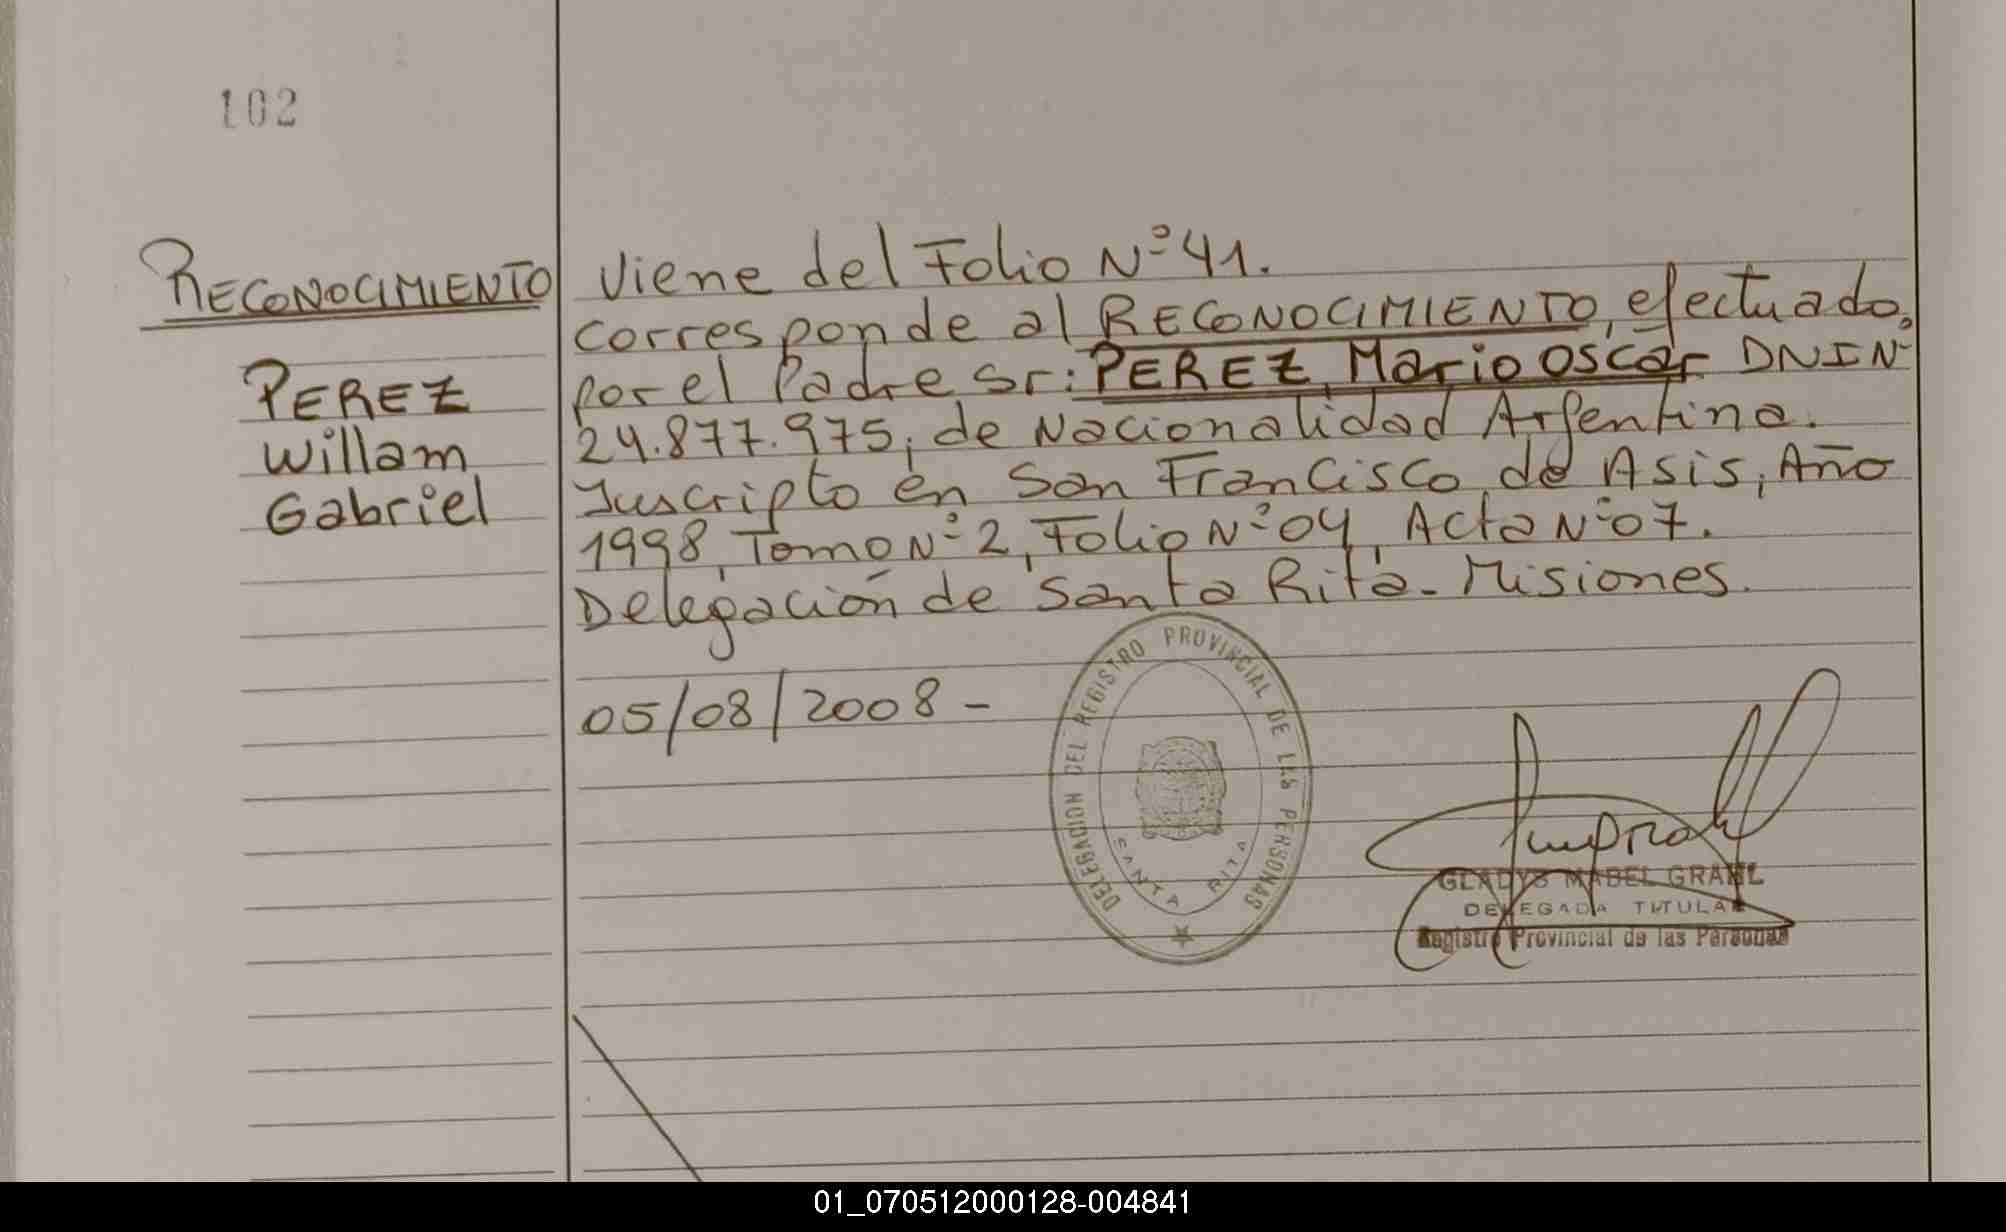 102
RECONOCIMIENTO
PEREZ
Willam
Gabriel
Viene del Folio Nº 41.
corresponde al RECONOCIMIENTO, efectuado,
por el Padre Sr: PEREZ, Mario Oscar DNI Nº
24.877.975, de Nacionalidad Argentina.
Inscripto en San Francisco de Asis, Año
1998, Tomo Nº 2, Folio Nº 04, Acta Nº 07.
Delegación de Santa Rita - Misiones.
05/08/2008 -
DELEGACION DEL REGISTRO PROVINCIAL DE LAS PERSONAS
SANTA RITA
GLADYS MABEL GRAHL
DELEGADA TITULAR
Registro Provincial de las Personas
01_070512000128-004841